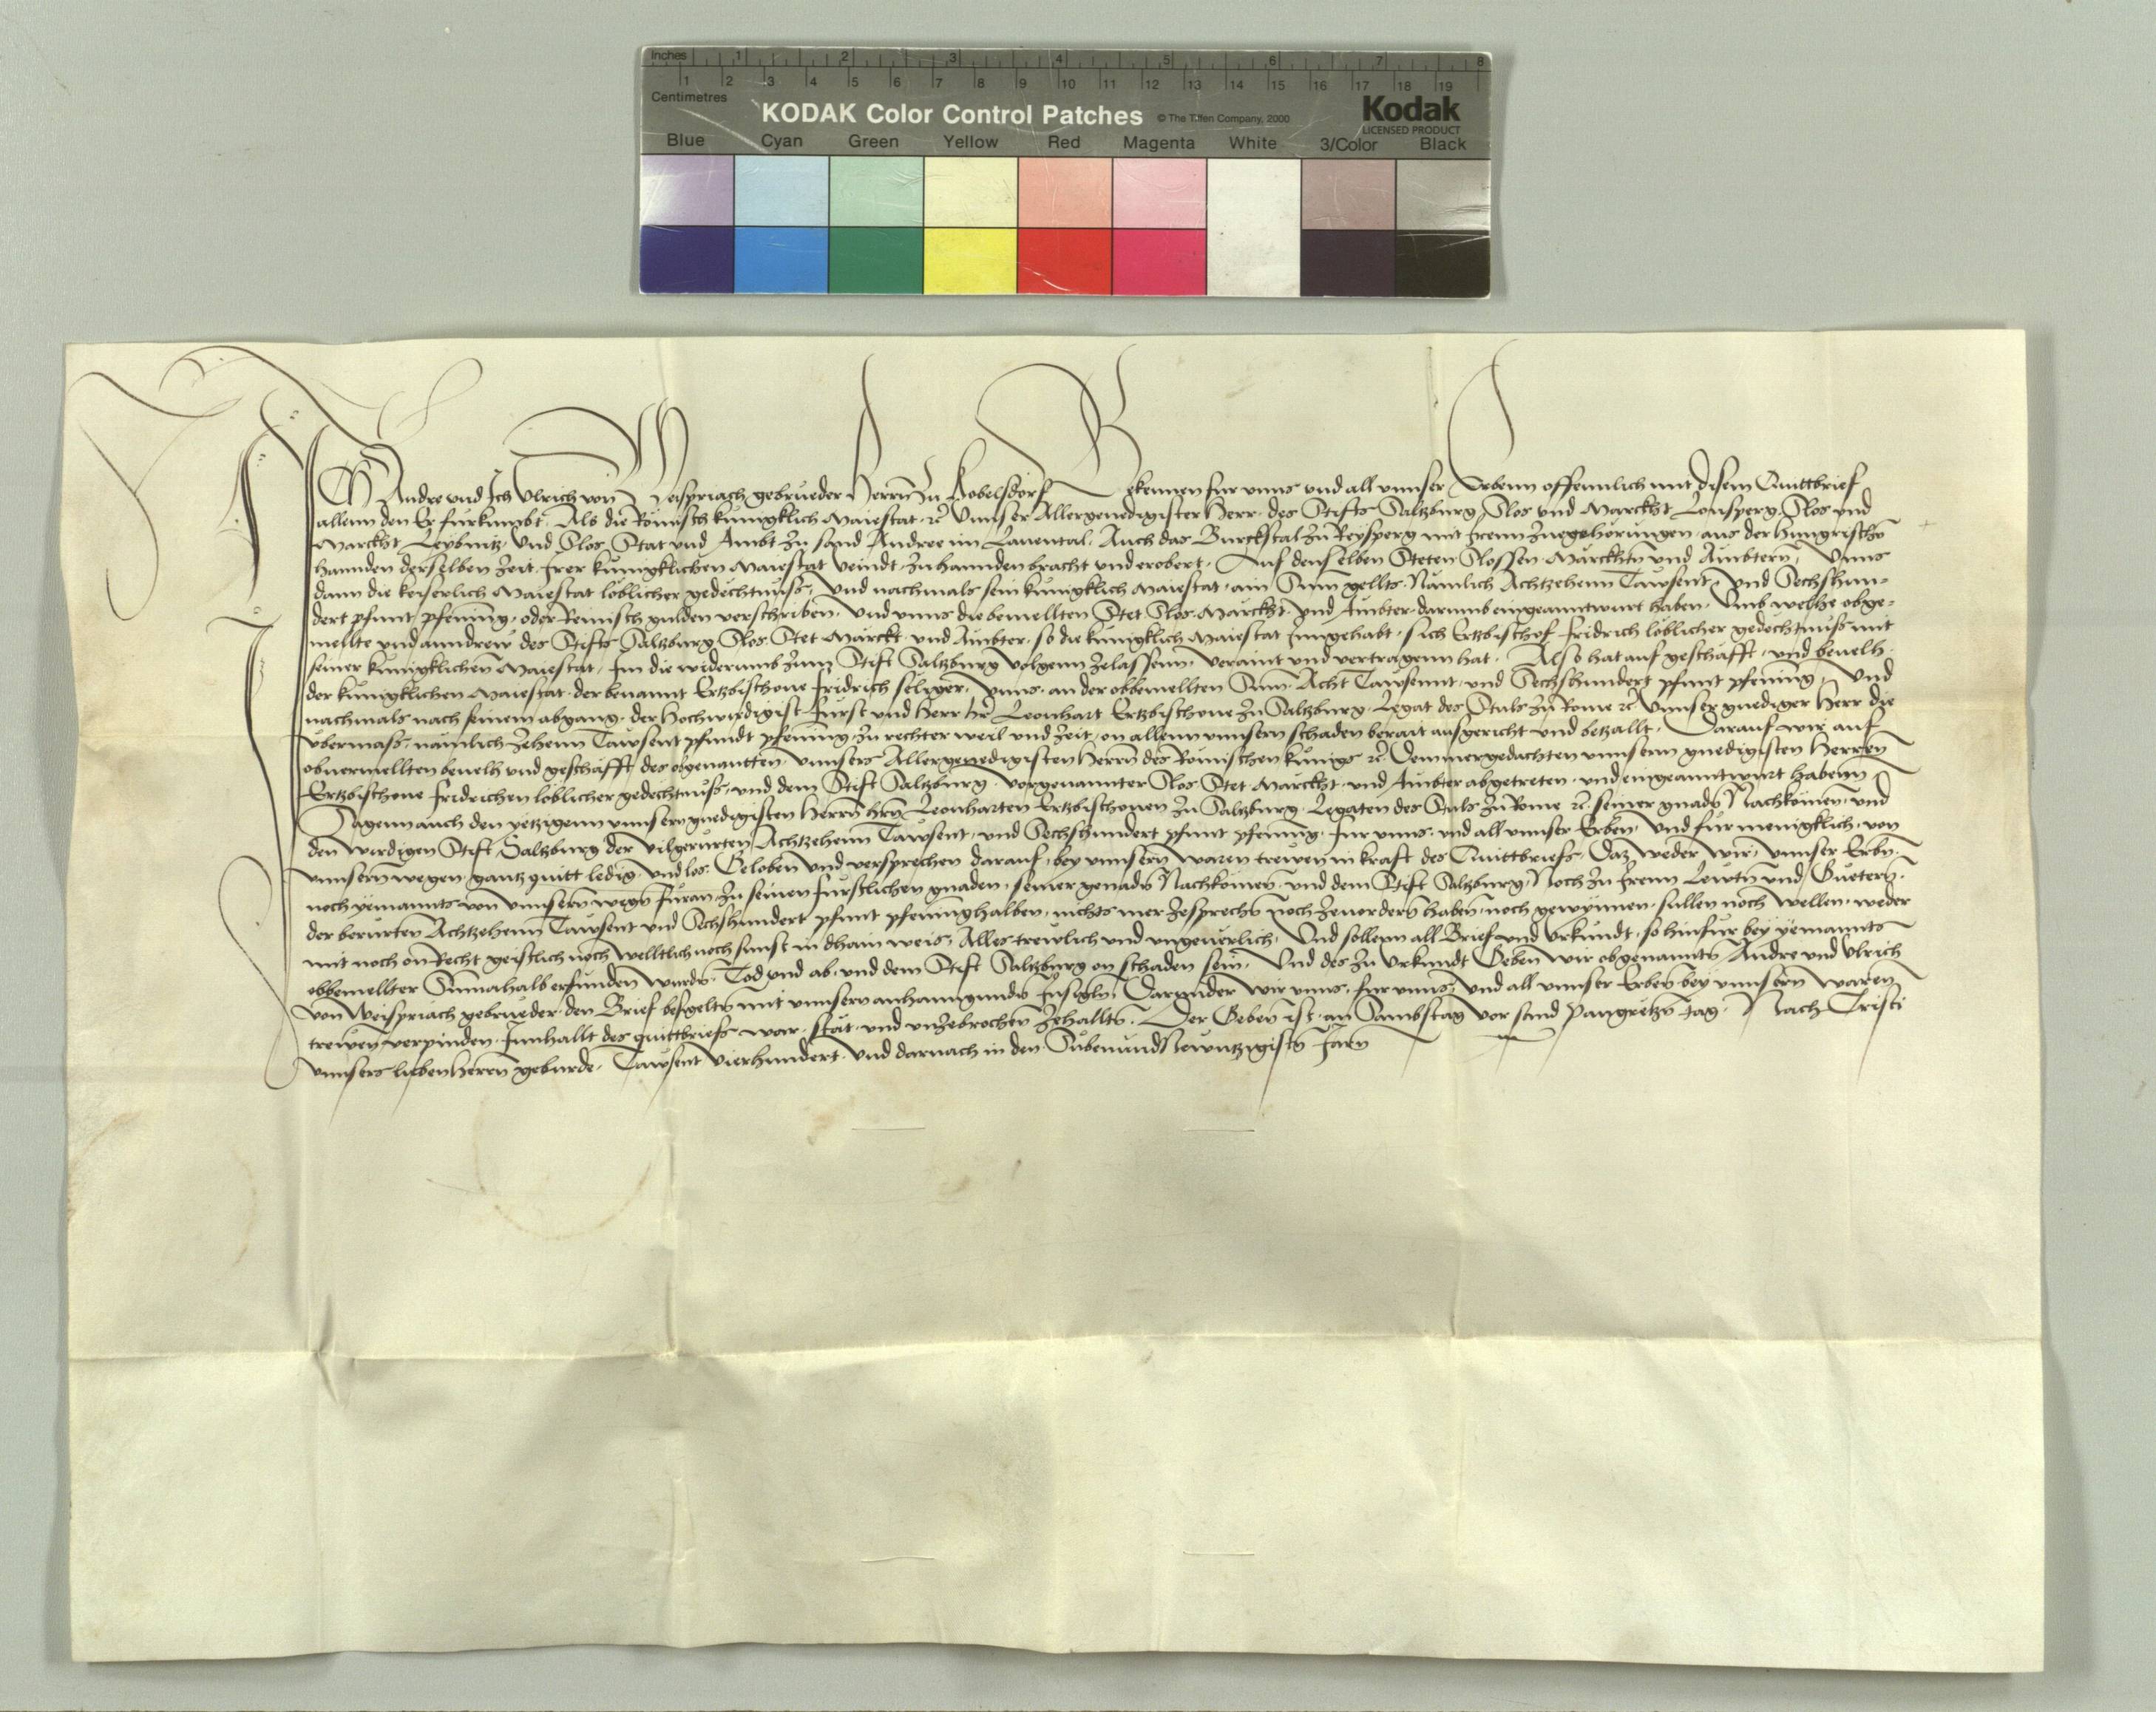 Inches 1 2 3 4 5 6 7 8
1 2 3 4 5 6 7 8 9 10 11 12 13 14 15 16 17 18 19
Centimetres
KODAK Color Control Patches © The Tiffen Company, 2000 Kodak
LICENSED PRODUCT
Blue Cyan Green Yellow Red Magenta White 3/Color Black
Ich Andre und Ich Ulrich von Weispriach gebrueder Herrn zu Kobelsdorf Bekennen fur unns und all unnser Erbenn offennlich mit disem Quittbrief
allenn den Er furkumbt. Als die Römisch kunigklich Maiestat ꝛc Unnser Allergenedigister Herr. des Stifts Saltzburg Slos und Marckht Lonsperg, Slos und
Marckht Leybnitz, und Slos Stat und Ambt zu sand Andree im Lauental. Auch das Burckstal zu Reysperg mit Irenn zuegehorungen, aus der hungrischn
hannden derselben zeit Irer kunigklichen Maiestat veindt, zu hannden bracht und erobert. Auf denselben Steten Slossen Märckhtn und Ämbtern, Unns
dann die keiserlich Maiestat löblicher gedechtnuss, und nachmals sein kunigklich Maiestat, ain Sum gellts. Nämlich Achtzehenn Tawsent und Sechshun-
dert pfunt pfening, oder Reinisch gulden verschriben. Und unns die bemellten Stet Slos Märckht und Ämbter darumb eingeanntwurt haben. Umb welhe obge-
mellte und anndrew des Stifts Saltzburg Slos Stet Märckt und Ämbter, so die kunigklich Maiestat Inngehabt, sich Ertzbischof Fridrich löblicher gedechtnuss mit
seiner kunigklichen Maiestat, Im die widerumb zum Stift Saltzburg volgenn zelassenn, veraint und vertragenn hat. Also hat auf geschäfft und beuelh
der kunigklichen Maiestat der benannt Ertzbischoue Fridrich säliger, unns an der obbemellten Sum Acht Tawsennt und Sechshundert pfunt pfening, Und
nachmals nach seinem abgang, der Hochwirdigist Fürst und Herr hr Leonhart Ertzbischoue zu Saltzburg, Legat des Stuls zu Rome ꝛc Unnser gnediger Herr die
übermass, nämlich zehenn Tawsent pfundt pfening zu rechter weil und zeit, on allenn unnsern schaden berait ausgericht und betzallt. Darauf wir auf
obuermellten beuelh und geschäfft des obgenantten unnsers Allergenedigisten Herrn des Römischen kunigs ꝛc Demmergedachten unnsernn gnedigisten Herren
Ertzbischoue Fridrichen löblicher gedechtnuss, und dem Stift Saltzburg vorgenannter Slos Stet Märckht und Ämbter abgetreten, und eingeanntwurt habenn
Sagenn auch den yetzigenn unnsern gnedigisten Herrn hrn Leonharten Ertzbischouen zu Saltzburg Legaten des Stuls zu Rome ꝛc seiner gnadn Nachkömen, und
den wirdigen Stift Saltzburg der vilgerurten Achtzehenn Tawsent und Sechshundert pfunt pfening, für unns und all unnser Erben, und für menigklich, von
unnsern wegen, gantz quitt ledig und los. Geloben und versprechen darauf, bey unnsern waren trewen in kraft des Quittbriefs, Daz weder wir, unnser Erbn,
noch yemannts von unnsern wegn füran zu seinen fürstlichen gnaden, seiner genadn Nachkömen, und dem Stift Saltzburg, Noch zu Irenn Lewtn und Guetern
der berürten Achtzehenn Tawsent und Sechshundert pfunt pfening halben, nichts mer zesprechn noch zeuordern haben, noch gewynnen, sullen noch wellen, weder
mit noch on Recht geistlich noch welltlich noch sunst in dhain weis, Alles trewlich und ungeuerlich. Und sollenn all Brief und Urkundt, so hinfür bey yemannts
obbemellter Summ halb erfunden wurdn, Tod und ab, und dem Stift Saltzburg on schaden sein. Und des zu Urkundt Geben wir obgenannts Andre und Ulrich
von Weispriach gebrueder den Brief besigelts mit unnsern anhanngunden Insigln, Darunder wir unns, für unns, und all unnser Erben bey unnsern waren
trewen verpinden, Innhallt des quittbriefs war, stät und unzebrochen zehalltn. Der Geben ist, an Sambstag vor sand Pangretzn tag, Nach Cristi
unnsers lieben Herrn geburde, Tawsent vierhundert und darnach in den Subenundnewntzigistn Jarn